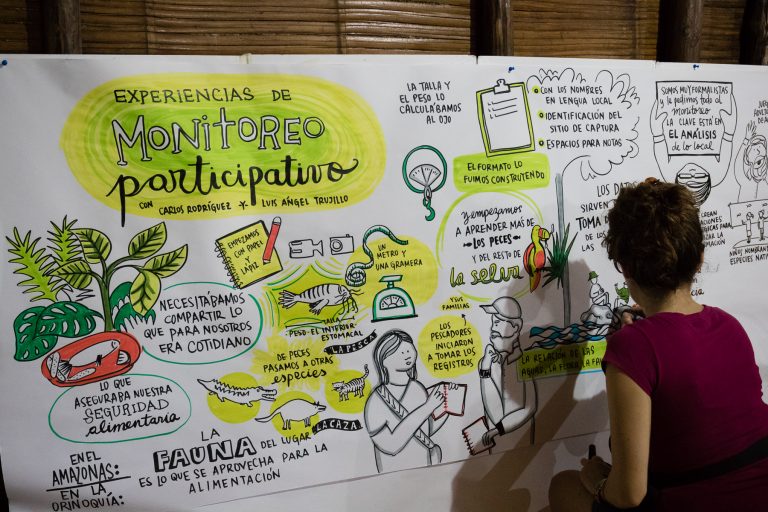 EXPERIENCIAS DE
MONITOREO
participativo
CON CARLOS RODRÍGUEZ * LUIS ÁNGEL TRUJILLO
NECESITÁBAMOS
COMPARTIR LO
QUE PARA NOSOTROS
ERA COTIDIANO
LO QUE
ASEGURABA NUESTRA
SEGURIDAD
alimentaria
EN EL
AMAZONAS:
EN LA
ORINOQUÍA:
LA
FAUNA DEL LUGAR
ES LO QUE SE APROVECHA PARA LA
ALIMENTACIÓN
EMPEZAMOS
CON PAPEL
Y LÁPIZ
UN
METRO Y
UNA GRAMERA
TALLA
PESO-EL INTERIOR
ESTOMACAL
LA PESCA
DE PECES
PASAMOS A OTRAS
especies
LA CAZA
LA TALLA Y
EL PESO LO
CALCULÁBAMOS
AL OJO
EL FORMATO LO
FUIMOS CONSTRUYENDO
CON LOS NOMBRES
EN LENGUA LOCAL
IDENTIFICACIÓN DEL
SITIO DE CAPTURA
ESPACIOS PARA NOTAS
Y EMPEZAMOS
A APRENDER MÁS DE
LOS PECES
Y DEL RESTO DE
la selva
Y SUS
FAMILIAS
LOS
PESCADORES
INICIARON
A TOMAR LOS
REGISTROS
LOS DAT
SIRVEN
TOMA D
LAS
LA RELACIÓN DE LAS
AGUAS, LA FLORA, LA FA
SOMOS MUY FORMALISTAS
Y le pedimos todo al
monitoreo
LA CLAVE ESTÁ EN
EL ANÁLISIS
de lo local
CREAN
NOMBRAN
ESPECIES NATI